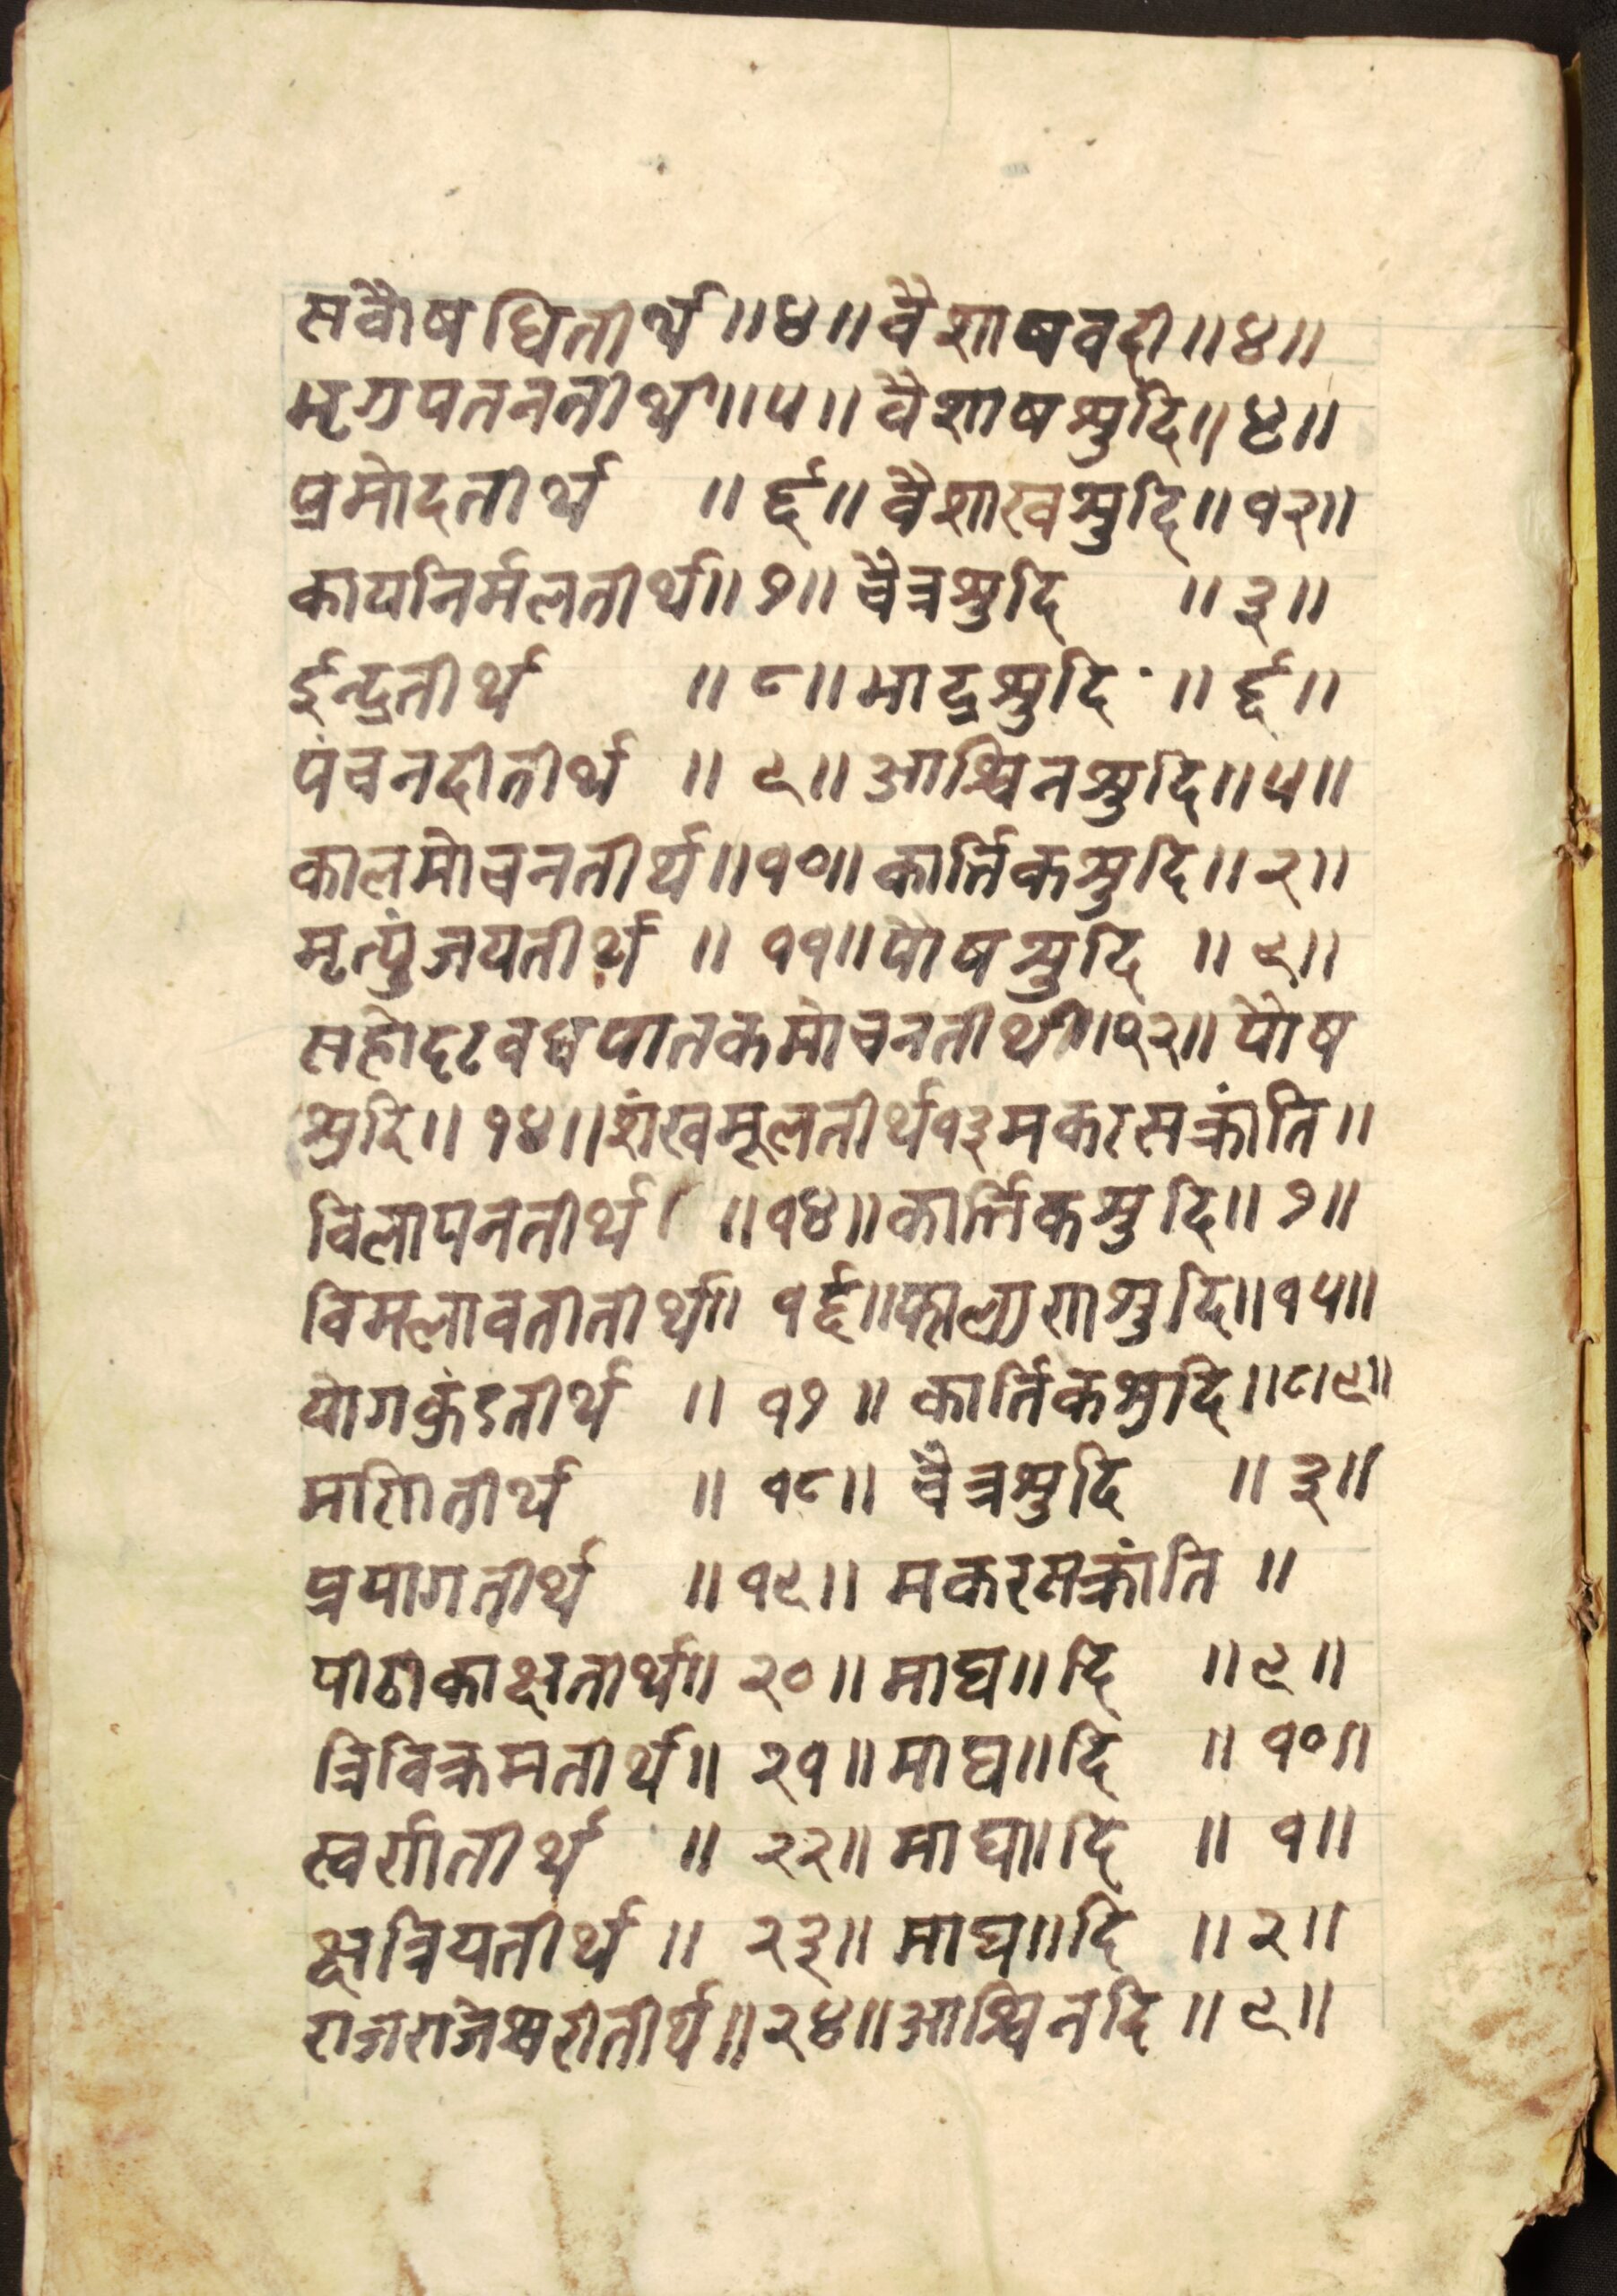 सर्वौषधितीर्थ ॥ ४ ॥ वैशाषवदी ॥ ४ ॥
मृगपतनतीर्थ ॥ ५ ॥ वैशाषसुदि ॥ ४ ॥
प्रमोदतीर्थ ॥ ६ ॥ वैशाखसुदि ॥ १२ ॥
कायनिर्मलतीर्थ ॥ ७ ॥ चैत्रसुदि ॥ ३ ॥
ईन्द्रतीर्थ ॥ ८ ॥ भाद्रसुदि ॥ ६ ॥
पंचनदीतीर्थ ॥ ९ ॥ आश्विनसुदि ॥ ५ ॥
कालमोचनतीर्थ ॥ १० ॥ कार्त्तिकसुदि ॥ २ ॥
मृत्युंजयतीर्थ ॥ ११ ॥ पोषसुदि ॥ ९ ॥
सहोदरवधपातकमोचनतीर्थ ॥ १२ ॥ पौष
सुदि ॥ १४ ॥ शंखमूलतीर्थ १३ मकरसक्रांति ॥
विलापनतीर्थ ॥ १४ ॥ कार्त्तिकसुदि ॥ ७ ॥
विमलावतीतीर्थ ॥ १६ ॥ फाल्गुणसुदि ॥ १५ ॥
योगकुंडतीर्थ ॥ १७ ॥ कार्तिकसुदि ॥ ८।९ ॥
मणितीर्थ ॥ १८ ॥ चैत्रसुदि ॥ ३ ॥
प्रयागतीर्थ ॥ १९ ॥ मकरसक्रांति ॥
पीठीकाक्षतीर्थ ॥ २० ॥ माघ ॥ दि ॥ ९ ॥
त्रिविक्रमतीर्थ ॥ २१ ॥ माघ ॥ दि ॥ १० ॥
स्वर्गतीर्थ ॥ २२ ॥ माघ ॥ दि ॥ १ ॥
क्षत्रियतीर्थ ॥ २३ ॥ माघ ॥ दि ॥ २ ॥
राजराजेश्वरीतीर्थ ॥ २४ ॥ आश्विनदि ॥ ९ ॥